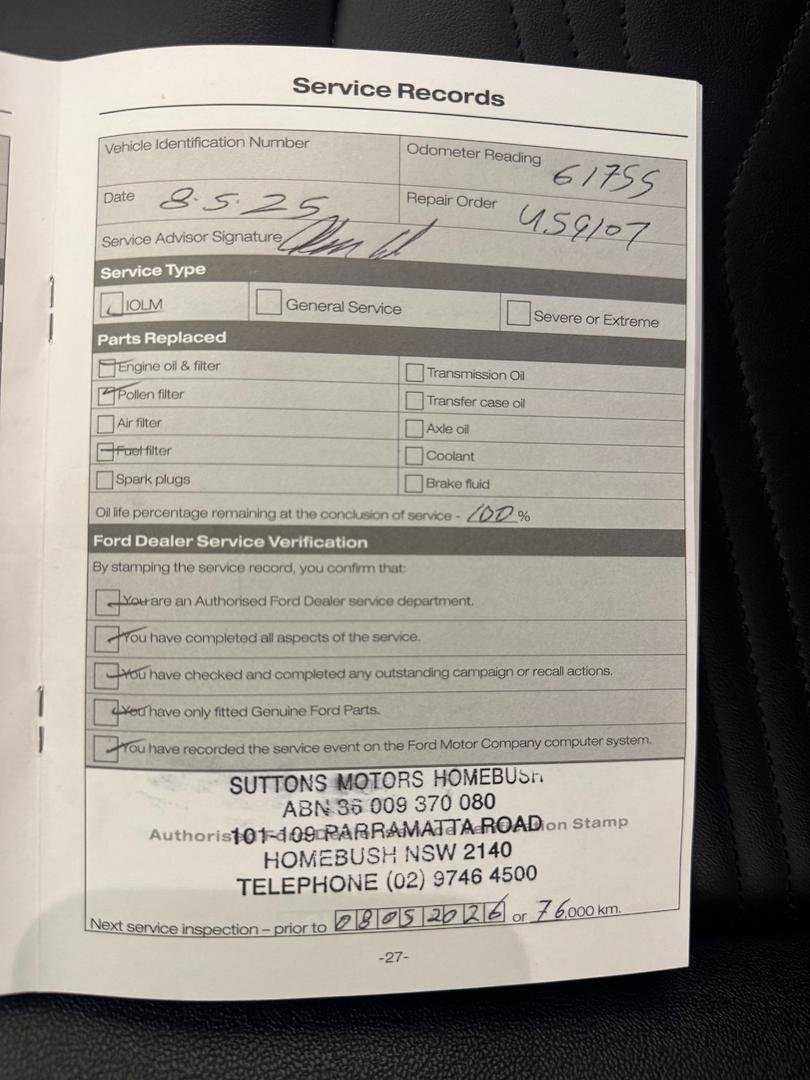 Service Records
Vehicle Identification Number
Odometer Reading 61755
Date 8.5.25
Repair Order U59107
Service Advisor Signature
Service Type
IOLM General Service Severe or Extreme
Parts Replaced
Engine oil & filter Transmission Oil
Pollen filter Transfer case oil
Air filter Axle oil
Fuel filter Coolant
Spark plugs Brake fluid
Oil life percentage remaining at the conclusion of service - 100 %
Ford Dealer Service Verification
By stamping the service record, you confirm that:
You are an Authorised Ford Dealer service department.
You have completed all aspects of the service.
You have checked and completed any outstanding campaign or recall actions.
You have only fitted Genuine Ford Parts.
You have recorded the service event on the Ford Motor Company computer system.
SUTTONS MOTORS HOMEBUSH
ABN 36 009 370 080
101-109 PARRAMATTA ROAD
Stamp
HOMEBUSH NSW 2140
TELEPHONE (02) 9746 4500
Next service inspection – prior to 08052026 or 76,000 km.
-27-